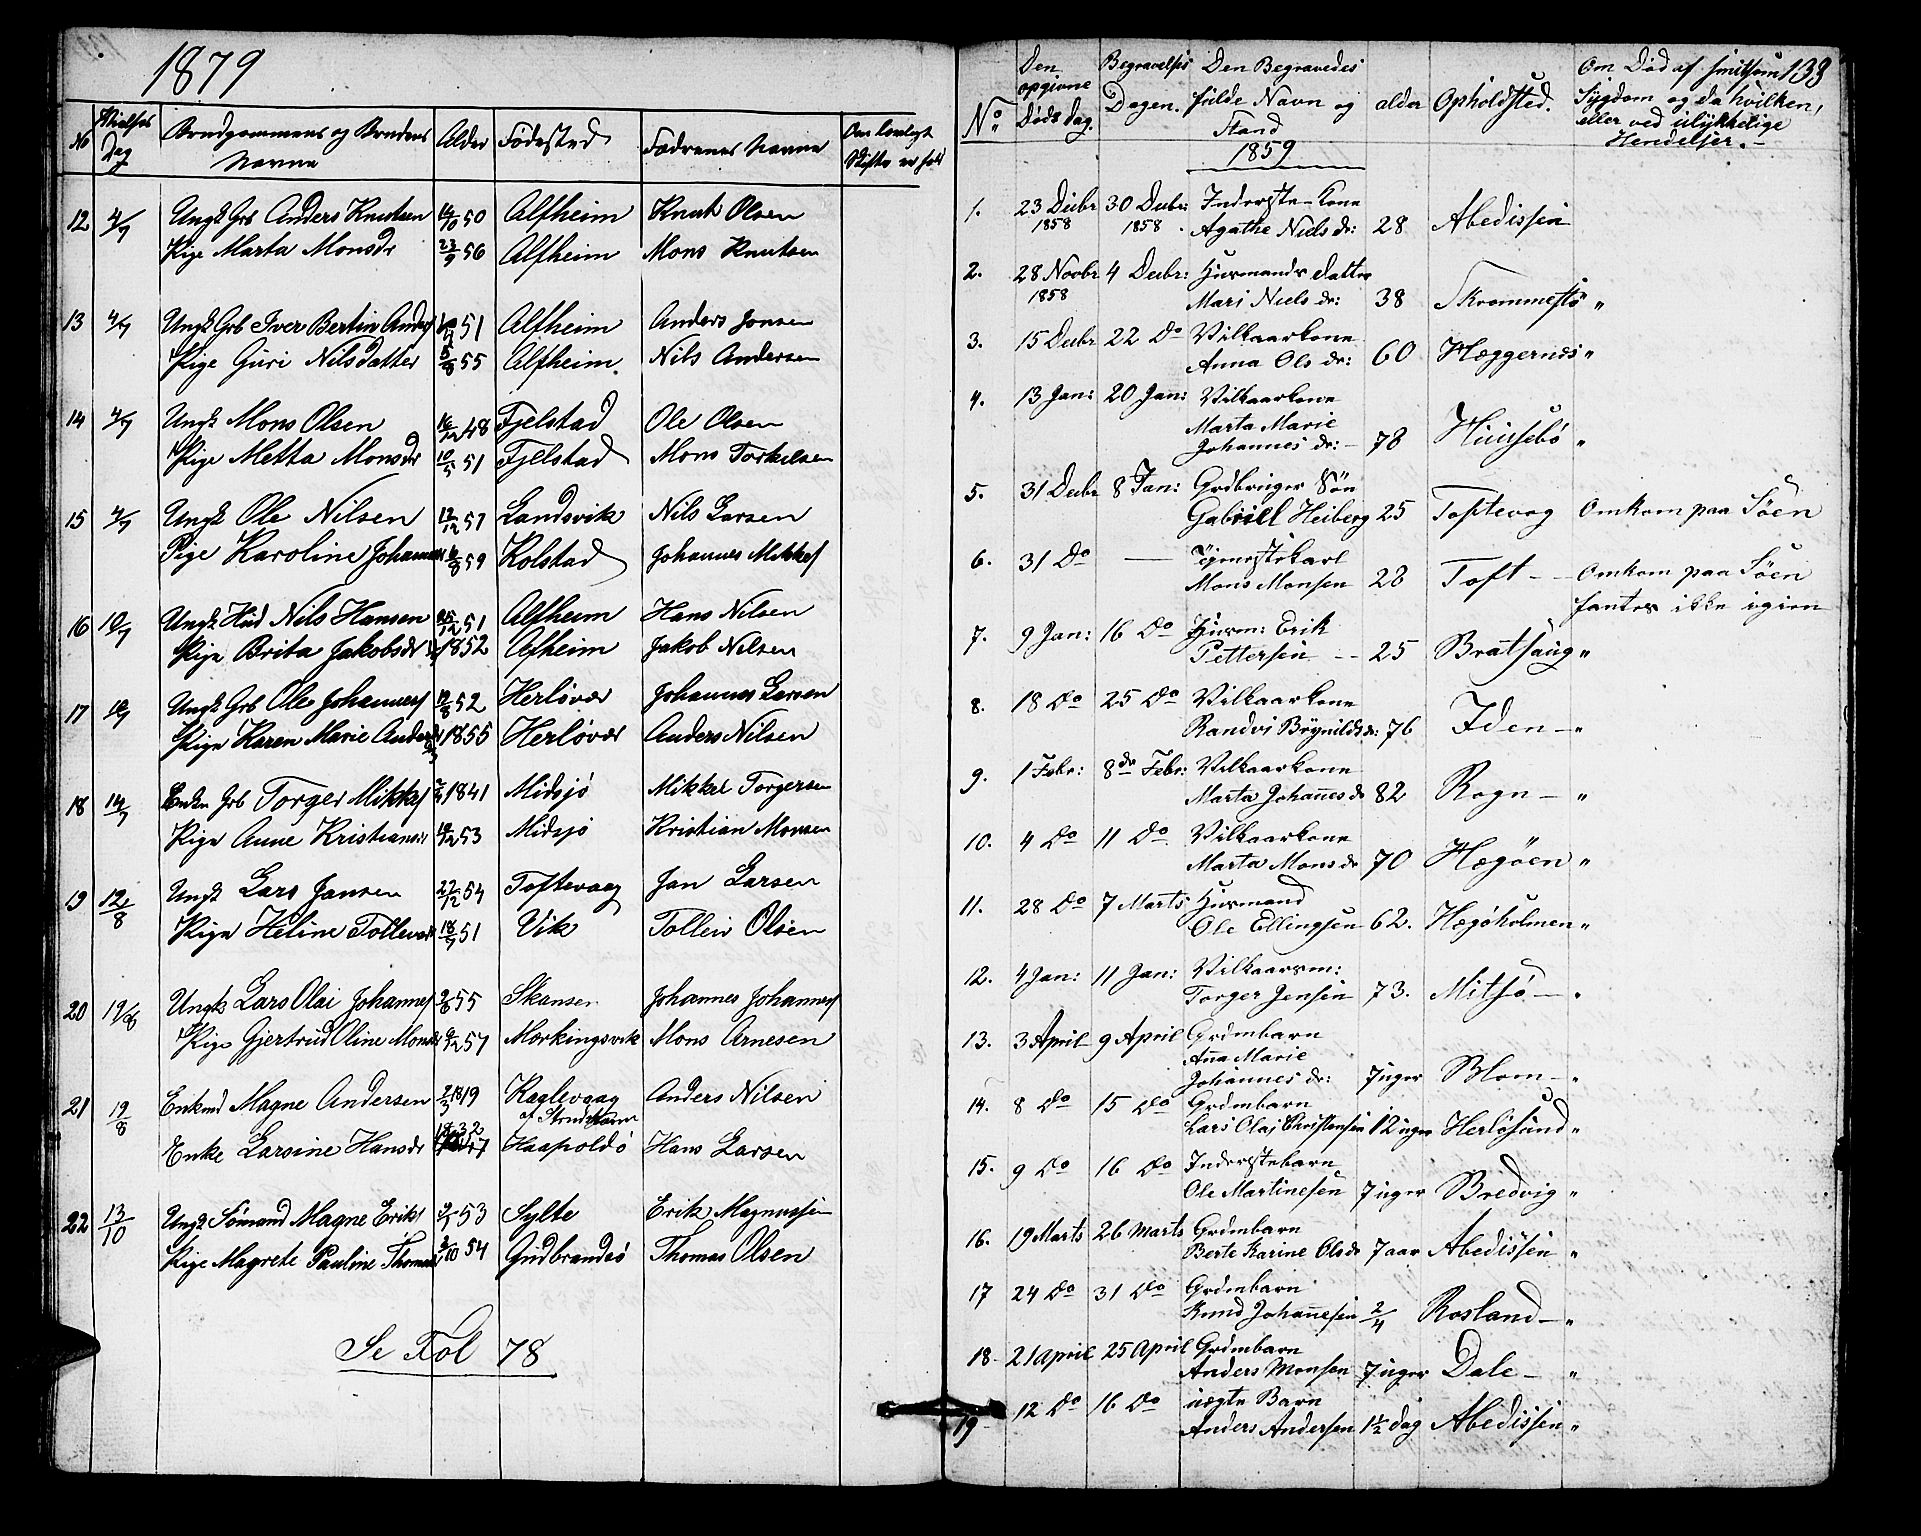 1879
No Vielses Dag Brudgommens og Brudens Navne Alder Fødested Fædrenes Navne Om lovligt Skifte er hol
12 4/7 Ungk Grb Anders Knutsen 50 Alfheim Knut Olsen
Pige Marta Monsdr 56 Alfheim Mons Knutsen
13 4/7 Ungk Grb Iver Bertin Anders 51 Alfheim Anders Jonsen
Pige Guri Nilsdatter 5/8 55 Alfheim Nils Andersen
14 4/7 Ungk Mons Olsen 16/12 48 Fjelstad Ole Olsen
Pige Metta Monsdr 10/5 51 Fjelstad Mons Torkelsen
15 4/7 Ungk Ole Nilsen 12/12 57 Landsvik Nils Larsen
Pige Karoline Johannes 59 Kolstad Johannes Mikkels
16 10/7 Ungk Nils Hansen 51 Alfheim Hans Nilsen
Pige Brita Jakobsdr 1852 Alfheim Jakob Nilsen
17 Ungk Grb Ole Johannes 52 Herløvær Johannes Larsen
Pige Karen Marie Anders 1855 Herløvær Anders Nilsen
18 14/7 Enkm Grb Torger Mikkels 1841 Midsjö Mikkel Torgersen
Pige Anne Kristiansdr 53 Midsjö Kristian Monsen
19 12/8 Ungk Lars Jansen 27/12 54 Toftevaag Jan Larsen
Pige Heline Tollevsdr 18/7 51 Vik Tolleiv Olsen
20 19/8 Ungk Lars Olai Johannes 55 Skansen Johannes Johannes
Pige Gjertrud Oline Monsdr 57 Morkingsvik Mons Arnesen
21 19/8 Enkmd Magne Andersen 2/3 1819 Raglevaag Anders Nilsen
Enke Larsine Hansdr 1832 Haapoldö Hans Larsen
22 13/10 Ungk Sømand Magne Eriks 53 Sylte Erik Magnussen
Pige Magrete Pauline Thomas 54 Gudbrandsö Thomas Olsen
Se Fol 78
133
No Den opgivne Døds dag. Begravelses Dagen. Den Begravedes fulde Navn og Stand alder Opholdsted. Om Død af smitsom Sygdom og da hvilken, eller ved ulykkelige Hendelser.
1859
1. 23 Decbr 30 Decbr: Inderste-Kone
1858 1858 Agathe Niels dr: 28 Abedissen
2. 28 Novbr 4 Decbr: Husmands datter
1858 Mari Niels dr: 38 Skrommestö "
3. 15 Decbr 22 Do Vilkaarkone
Anna Ols dr: 60 Hæggernes "
4. 13 Jan: 20 Jan: Vilkaarkone
Marta Marie
Johannes dr: 78 Huusebö "
5. 31 Decbr 8 Jan: Grdbruger Sön
Gabriel Heiberg 25 Toftevag Omkom paa Söen
6. 31 Do — Tjenestekarl
Mons Monsen 28 Toft Omkom paa Söen
fantes ikke igien
7. 9 Jan: 16 Do Husm: Erik
Pettersen 25 Bratsaug "
8. 18 Do 25 Do Vilkaarkone
Randvi Brynilds dr: 76 Iden "
9. 1 Febr: 8de Febr: Vilkaarkone
Marta Johanes dr 82 Rogn "
10. 4 Do 11 Do Vilkaarkone
Marta Mons dr 70 Hægöen "
11. 28 Do 7 Marts Husmand
Ole Ellingsen 62. Hægöholmen "
12. 4 Jan: 11 Jan: Vilkaarsm:
Torger Jensen 73. Mitsö "
13. 3 April 9 April Grdmbarn
Ana Marie
Johannes dr: 7 uger Blom "
14. 8 Do 15 Do Grdmbarn
Lars Olai Christensen 12 uger Herlösund "
15. 9 Do 16 Do Inderstebarn
Ole Martinesen 7 uger Bredvig "
16. 19 Marts 26 Marts Grdmbarn
Berte Karine Ols dr 7 aar Abedissen "
17 24 Do 31 Do Grdmbarn
Knud Johanesen 2/4 Rosland "
18. 21 April 25 April Grdmbarn
Anders Monsen 7 uger Dale "
19 12 Do 16 Do uægte Barn
Anders Andersen 1 1/2 dag Abedissen "